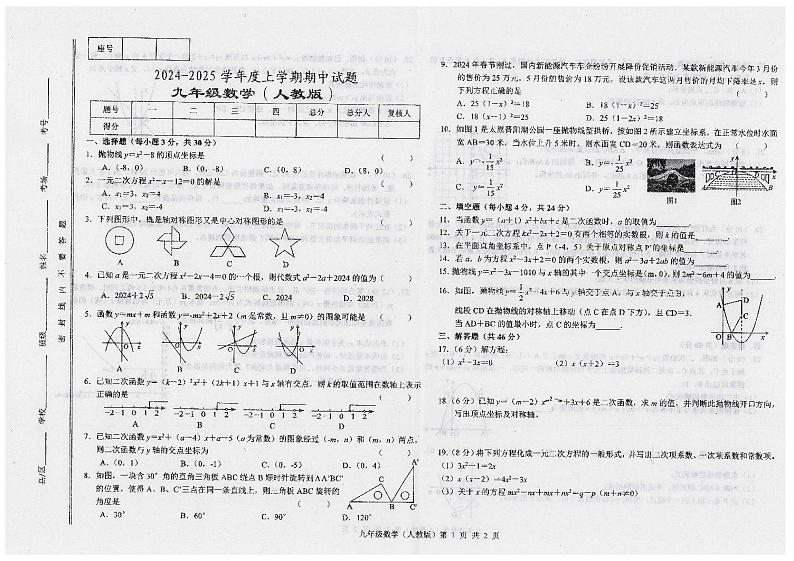 座号
2024-2025 学年度上学期期中试题
九年级数学（人教版）
题号 一 二 三 四 总分 总分人 复核人
得分
一、选择题（每小题 3 分，共 30 分）
1. 抛物线 y=x²-8 的顶点坐标是 （ ）
A.（-8，0） B.（0，-8） C.（0，8） D.（8，0）
2. 一元二次方程 x²-x-12=0 的解是 （ ）
A. x₁=3，x₂=4 B. x₁=-3，x₂=-4
C. x₁=3，x₂=-4 D. x₁=-3，x₂=4
3. 下列图形中，既是轴对称图形又是中心对称图形的是 （ ）
A B C D
4. 已知 a 是一元二次方程 x²-2x-4=0 的一个根，则代数式 a²-2a+2024 的值为（ ）
A. 2024+2√5 B. 2024-2√5 C. 2024 D. 2028
5. 函数 y=mx+m 和函数 y=-mx²+2x+2（m 是常数，且 m≠0）的图象可能是 （ ）
A B C D
6. 已知二次函数 y=（k-2）²x²+（2k+1）x+1 与 x 轴有交点，则 k 的取值范围在数轴上表示
正确的是 （ ）
-2 -1 0 1 2 -2 -1 0 1 2 -2 -1 0 1 2 -2 -1 0 1 2
A B C D
7. 已知二次函数 y=x²+（a-4）x+a-5（a 为常数）的图象经过（-m，n）和（m，n）两点，
则二次函数与 y 轴的交点坐标为 （ ）
A.（0，1） B.（0，-1） C.（0，-5） D.（0，4）
8. 如图，一块含 30° 角的直角三角板 ABC 绕点 B 顺时针旋转到△A'BC'
的位置，使得 A、B、C'三点在同一条直线上，则三角板 ABC 旋转的
角度是 （ ）
A. 30° B. 60° C. 90° D. 120°
A' C A B C'
9. 2024 年春节刚过，国内新能源汽车车企纷纷开展降价促销活动. 某款新能源汽车今年 3 月份
的售价为 25 万元，5 月份的售价为 18 万元，设该款汽车这两月售价的月均下降率是 x，则
下列方程正确的是 （ ）
A. 25（1-x）²=18 B. 18（1-x）²=25
C. 18（x-1）²=25 D. 25（1-2x）²=18
10. 如图 1 是太原晋阳湖公园一座抛物线型拱桥，按如图 2 所示建立坐标系，在正常水位时水面
宽 AB=30 米，当水位上升 5 米时，则水面宽 CD=20 米，则函数表达式为 （ ）
图1 图2
二、填空题（每小题 4 分，共 24 分）
11. 当函数 y=（a+1）x²+bx+c 是二次函数时，a 的取值为
12. 关于一元二次方程 kx²-2x+2=0 有两个相等的实数根，则 k 的值是
13. 在平面直角坐标系中，点 P（-4，5）关于原点对称点 P'的坐标是
14. 若 a，b 为方程 x²-3x+2=0 的两个实数根，则 a²-3a+2ab 的值为
15. 抛物线 y=x²-3x-1010 与 x 轴的其中一个交点坐标是（m，0），则 2m²-6m+4 的值为
16. 如图，抛物线 y=1/2x²-4x+6 与 y 轴交于点 A，与 x 轴交于点 B，
线段 CD 在抛物线的对称轴上移动（点 C 在点 D 下方），且 CD=3.
当 AD+BC 的值最小时，点 C 的坐标为
三、解答题（共 46 分）
17.（6 分）解方程：
（1）x²-3x=0 （2）x（x+2）=3
18.（6 分）已知
是二次函数，求 m 的值，并判断此抛物线开口方向，
写出顶点坐标及对称轴.
19.（8 分）将下列方程化成一元二次方程的一般形式，并写出二次项系数、一次项系数和常数项。
（1）3x²+1=2x
（2）x（x-2）=4x²-3x
（3）关于 x 的方程 mx²-nx+mx+nx²=q-p（m+n≠0）
九年级数学（人教版）第 1 页 共 2 页
县/区 学校 班级 姓名 考场 考号
密 封 线 内 不 要 答 题